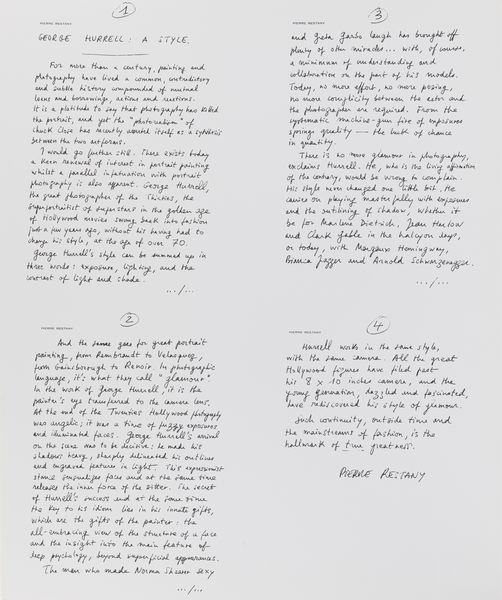 1
PIERRE RESTANY
GEORGE HURRELL : A STYLE.
For more than a century, painting and
photography have lived a common, contradictory
and subtle history compounded of mutual
loans and borrowings, actions and reactions.
It is a platitude to say that photography has killed
the portrait, and yet the "photorealism" of
Chuck Close has recently asserted itself as a synthesis
between the two artforms.
I would go further still. There exists today
a keen renewal of interest in portrait painting
whilst a parallel infatuation with portrait
photography is also apparent. George Hurrell,
the great photographer of the Thirties, the
superportraitist of superstars in the golden age
of Hollywood movies swung back into fashion
just a few years ago, without his having had to
change his style, at the age of over 70.
George Hurrell's style can be summed up in
three words : exposure, lighting, and the
contrast of light and shade.
.../...
2
PIERRE RESTANY
And the same goes for great portrait
painting, from Rembrandt to Velasquez,
from Gainsborough to Renoir. In photographic
language, it's what they call "glamour".
In the work of George Hurrell, it is the
painter's eye transferred to the camera lens.
At the end of the Twenties Hollywood photography
was angelic; it was a time of fuzzy exposures
and illuminated faces. George Hurrell's arrival
on the scene was to be decisive : he made his
shadows heavy, sharply delineated his outlines
and engraved feature in light. This expressionist
stance sensualizes faces and at the same time
releases the inner force of the sitter. The secret
of Hurrell's success and at the same time
the key to his idiom lies in his innate gifts,
which are the gifts of the painter : the
all-embracing view of the structure of a face
and the insight into the main feature of
deep psychology, beyond superficial appearances.
The man who made Norma Shearer sexy
.../...
3
PIERRE RESTANY
and Greta Garbo laugh has brought off
plenty of other miracles... with, of course,
a minimum of understanding and
collaboration on the part of his models.
Today, no more effort, no more posing,
no more complicity between the actor and
the photographer are required. From the
systematic machine-gun fire of exposures
springs quality — the luck of chance
in quantity.
There is no more glamour in photography,
exclaims Hurrell. He, who is the living apparition
of the century, would be wrong to complain.
His style never changed one little bit. He
carries on playing masterfully with exposures
and the outlining of shadow, whether it
be for Marlene Dietrich, Jean Harlow
and Clark Gable in the halcyon days,
or today, with Margaux Hemingway,
Bianca Jagger and Arnold Schwarzenegger.
.../...
4
PIERRE RESTANY
Hurrell works in the same style,
with the same camera. All the great
Hollywood figures have filed past
his 8 x 10 inches camera, and the
young generation, dazzled and fascinated,
have rediscovered his style of glamour.
Such continuity, outside time and
the mainstreams of fashion, is the
hallmark of true greatness.
PIERRE RESTANY